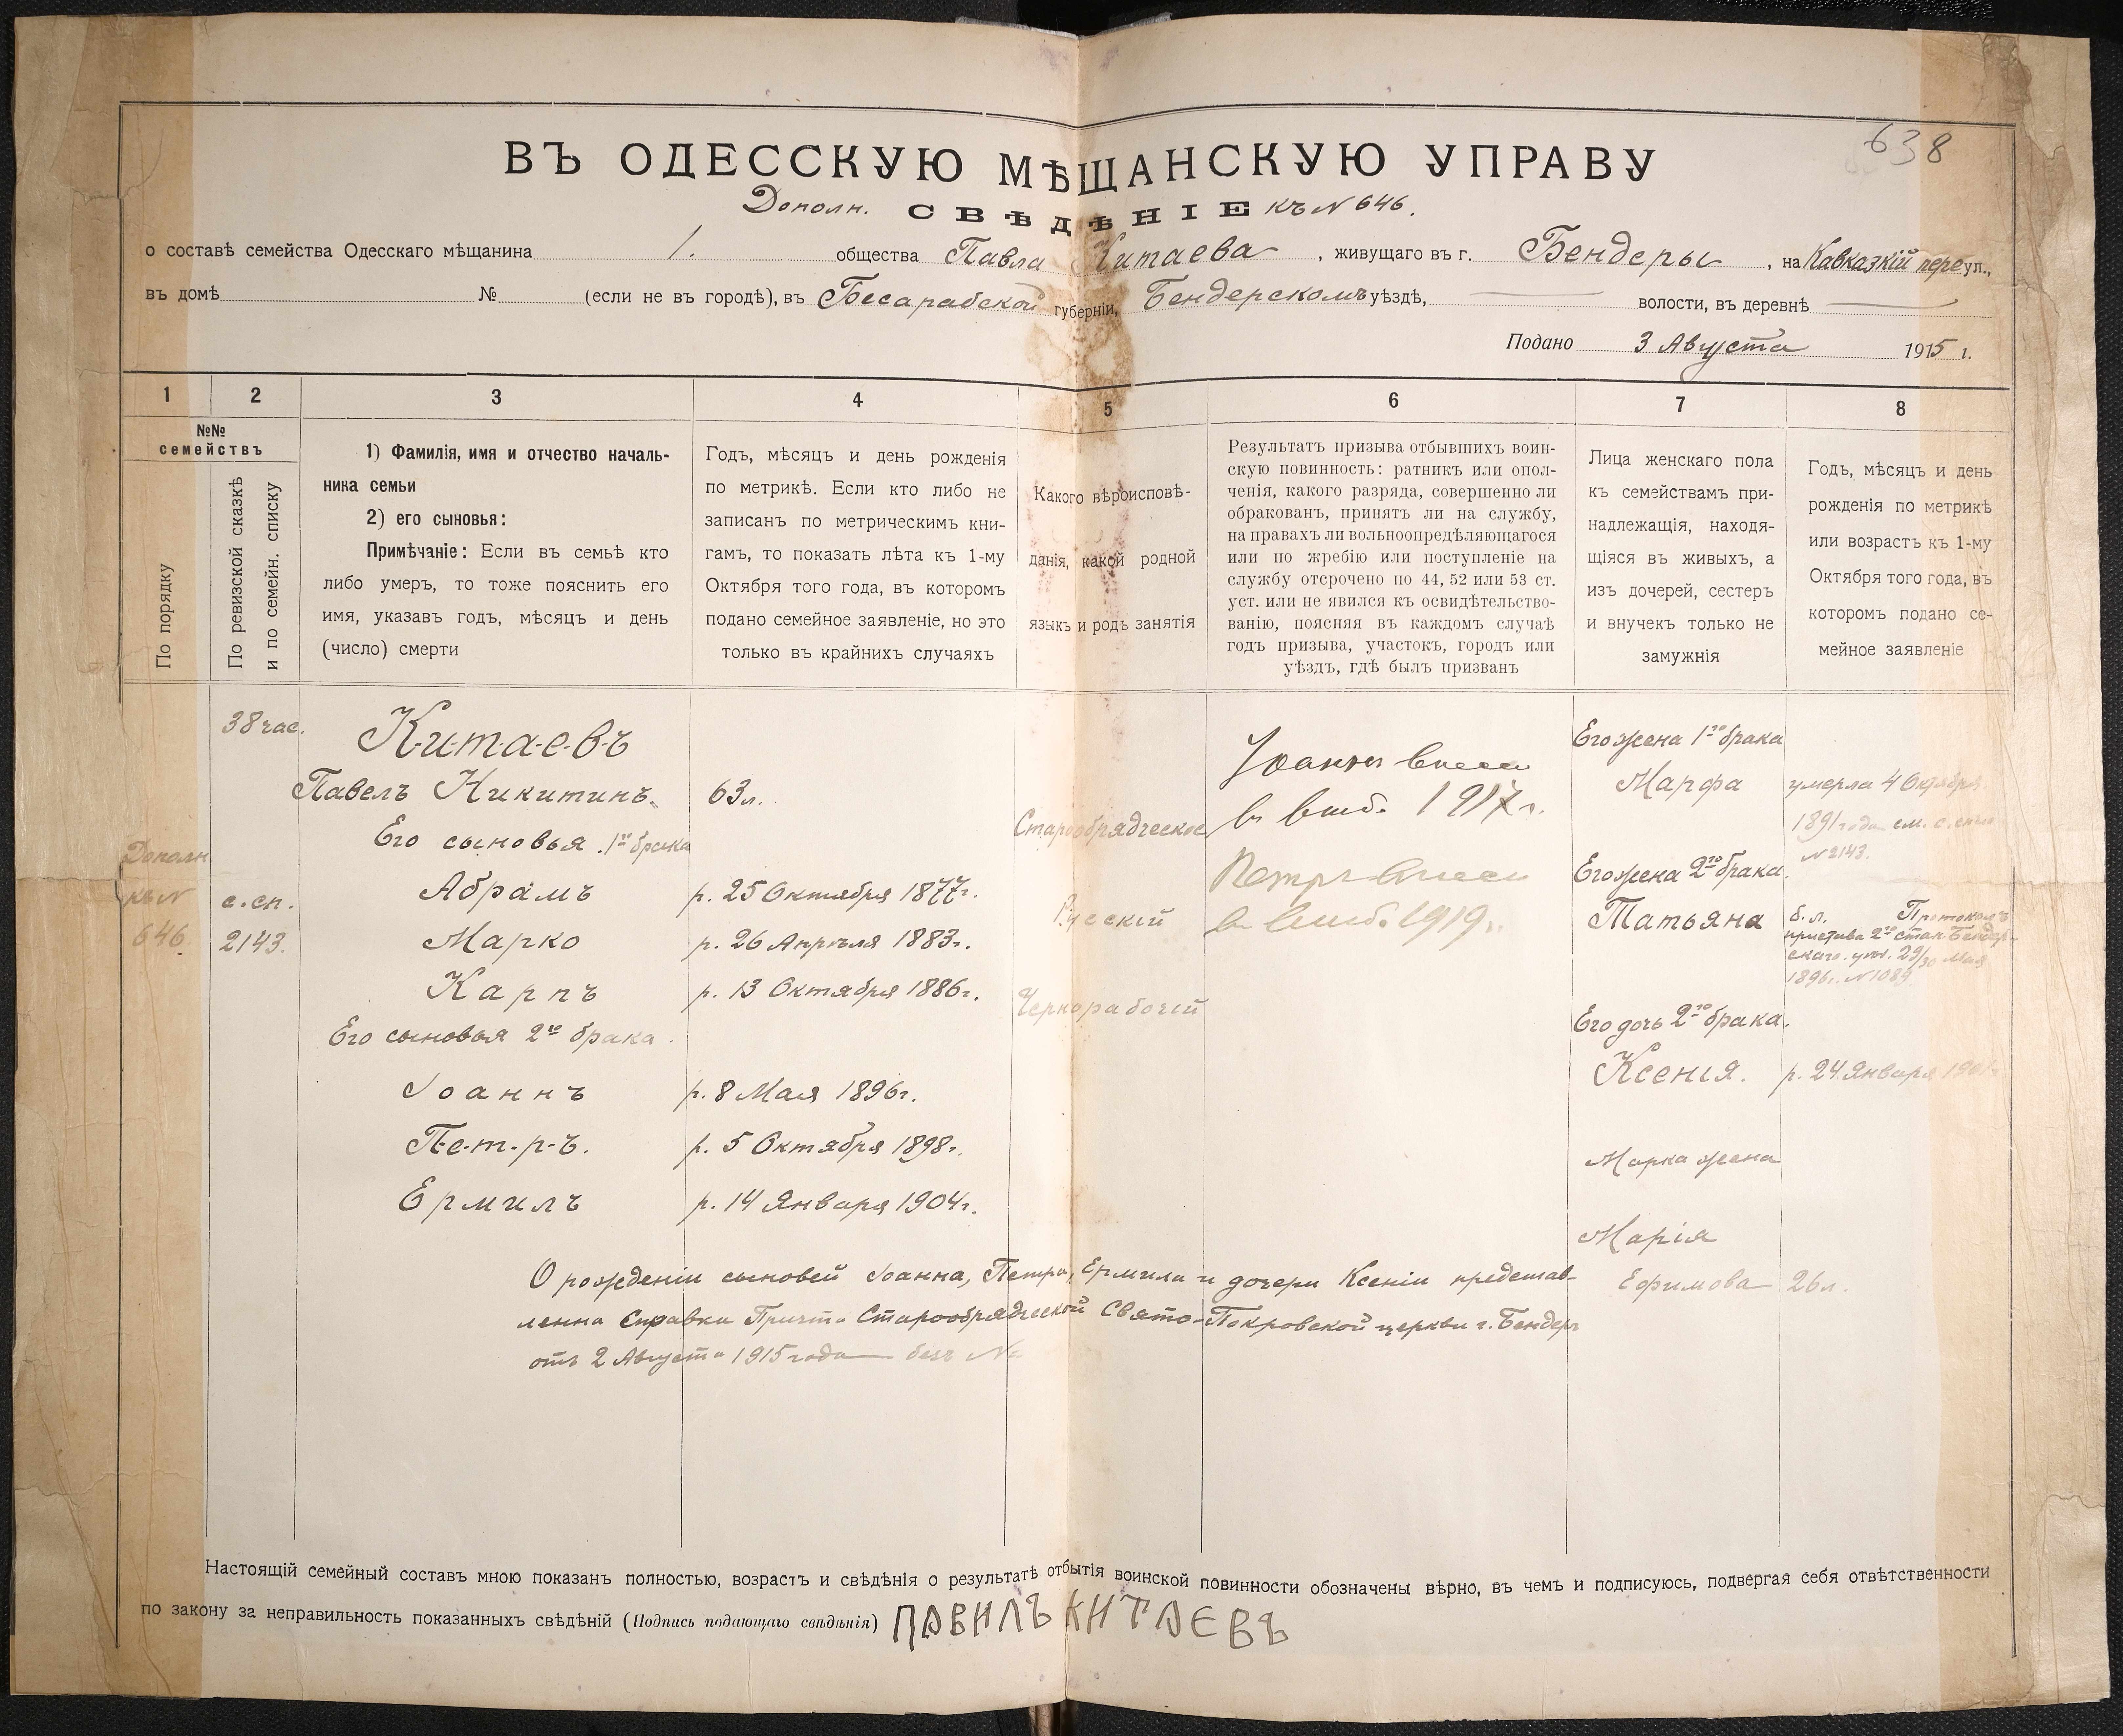 638
ВЪ ОДЕССКУЮ МѢЩАНСКУЮ УПРАВУ
Дополн. СВѢДѢНІЕ къ № 646.
о составѣ семейства Одесскаго мѣщанина 1. общества Павла Китаева, живущаго въ г. Бендеры, на Кавказкій переул.,
въ домѣ № (если не въ городѣ), въ Бесарабской губерніи, Бендерскомъ уѣздѣ, волости, въ деревнѣ
Подано 3 Августа 1915 г.
1 2 3 4 5 6 7 8
№№
семействъ
По порядку
По ревизской сказкѣ
и по семейн. списку
1) Фамилія, имя и отчество началь-
ника семьи
2) его сыновья:
Примѣчаніе: Если въ семьѣ кто
либо умеръ, то тоже пояснить его
имя, указавъ годъ, мѣсяцъ и день
(число) смерти
Годъ, мѣсяцъ и день рожденія
по метрикѣ. Если кто либо не
записанъ по метрическимъ кни-
гамъ, то показать лѣта къ 1-му
Октября того года, въ которомъ
подано семейное заявленіе, но это
только въ крайнихъ случаяхъ
Какого вѣроисповѣ-
данія, какой родной
языкъ и родъ занятія
Результатъ призыва отбывшихъ воин-
скую повинность: ратникъ или опол-
ченія, какого разряда, совершенно ли
обракованъ, принятъ ли на службу,
на правахъ ли вольноопредѣляющагося
или по жребію или поступленіе на
службу отсрочено по 44, 52 или 53 ст.
уст. или не явился къ освидѣтельство-
ванію, поясняя въ каждомъ случаѣ
годъ призыва, участокъ, городъ или
уѣздъ, гдѣ былъ призванъ
Лица женскаго пола
къ семействамъ при-
надлежащія, находя-
щіяся въ живыхъ, а
изъ дочерей, сестеръ
и внучекъ только не
замужнія
Годъ, мѣсяцъ и день
рожденія по метрикѣ
или возрастъ къ 1-му
Октября того года, въ
которомъ подано се-
мейное заявленіе
Дополн
къ №
646
38 час.
с. сп.
2143.
Китаевъ
Павелъ Никитинъ. 63 л.
Его сыновья 1го брака
Абрамъ р. 25 Октября 1877 г.
Марко р. 26 Апрѣля 1883 г.
Карпъ р. 13 Октября 1886 г.
Его сыновья 2го брака.
Іоаннъ р. 8 Мая 1896 г.
Петръ. р. 5 Октября 1898 г.
Ермилъ р. 14 Января 1904 г.
Старообрядческое
Русскій
Чернорабочій
Іоаннъ внесен
в 1917 г.
Петръ внесен
в 1919 г.
Его жена 1го брака
Марфа умерла 4 Октября
1891 года см. с. списк
№ 2143.
Его жена 2го брака.
Татьяна б. л. Протоколъ
пристава 2го стан Бендер-
скаго. уѣз. 29/30 Мая
1896 г. № 1089
Его дочь 2го брака.
Ксенія. р. 24 Января 1901 г.
Марка жена
Марія
Ефимова 26 л.
О рожденіи сыновей Іоанна, Петра, Ермила и дочери Ксеніи представ-
ленна Справка Причта Старообрядческой Свято-Покровской церкви г. Бендеръ
отъ 2 Августа 1915 года безъ №
Настоящій семейный составъ мною показанъ полностью, возрастъ и свѣдѣнія о результатѣ отбытія воинской повинности обозначены вѣрно, въ чемъ и подписуюсь, подвергая себя отвѣтственности
по закону за неправильность показанныхъ свѣдѣній (Подпись подающаго свѣдѣнія) ПАВИЛЪ КИТАЕВЪ